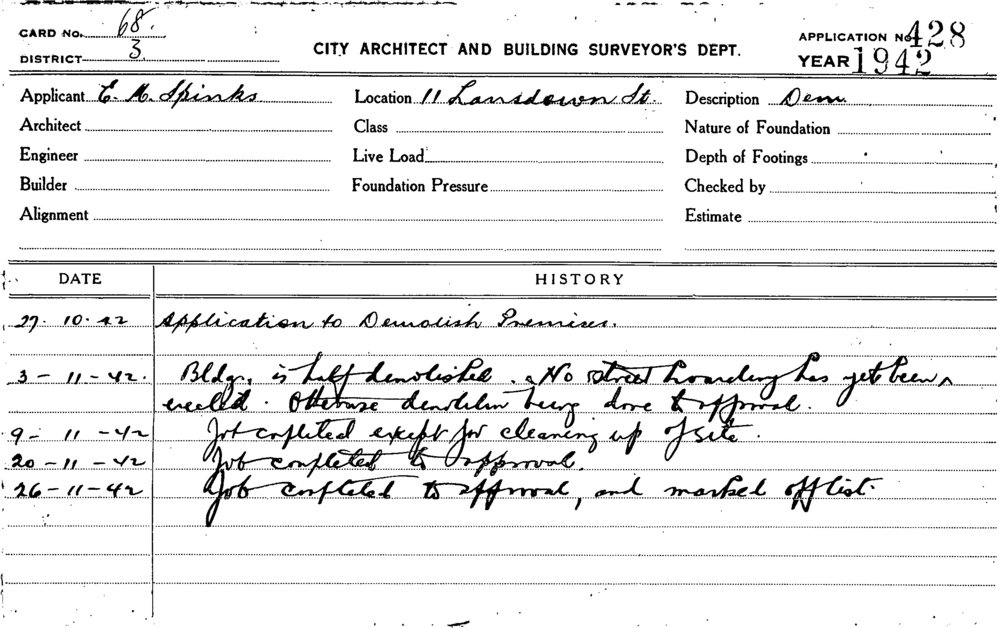 CARD No. 68.
DISTRICT 3
CITY ARCHITECT AND BUILDING SURVEYOR'S DEPT.
APPLICATION No 428
YEAR 1942
Applicant E. M. Spinks Location 11 Lansdown St. Description Dem
Architect Class Nature of Foundation
Engineer Live Load Depth of Footings
Builder Foundation Pressure Checked by
Alignment Estimate
DATE HISTORY
27. 10. 42 Application to Demolish Premises.
3 - 11 - 42. Bldg. is half demolished. No street hoarding has yet been
erected. Otherwise demolition being done to approval.
9 - 11 - 42 Job completed except for cleaning up of site.
20 - 11 - 42 Job completed to approval.
26 - 11 - 42 Job completed to approval, and marked off list.